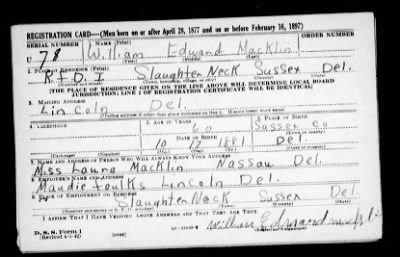 REGISTRATION CARD—(Men born on or after April 28, 1877 and on or before February 16, 1897)
SERIAL NUMBER 1. NAME (Print) ORDER NUMBER
U 78 William Edward Macklin
2. PLACE OF RESIDENCE (Print)
R.F.D. 1 Slaughter Neck Sussex Del.
[THE PLACE OF RESIDENCE GIVEN ON THE LINE ABOVE WILL DETERMINE LOCAL BOARD
JURISDICTION; LINE 2 OF REGISTRATION CERTIFICATE WILL BE IDENTICAL]
3. MAILING ADDRESS
Lincoln Del.
4. TELEPHONE 5. AGE IN YEARS 6. PLACE OF BIRTH
60 Sussex Co
DATE OF BIRTH
10 17 1881 Del.
7. NAME AND ADDRESS OF PERSON WHO WILL ALWAYS KNOW YOUR ADDRESS
Miss Laura Macklin Nassau Del.
8. EMPLOYER'S NAME AND ADDRESS
Maudie Foulks Lincoln Del.
9. PLACE OF EMPLOYMENT OR BUSINESS
Slaughter Neck Sussex Del.
I AFFIRM THAT I HAVE VERIFIED ABOVE ANSWERS AND THAT THEY ARE TRUE.
D. S. S. Form 1
(Revised 4-1-42) (over) William Edward